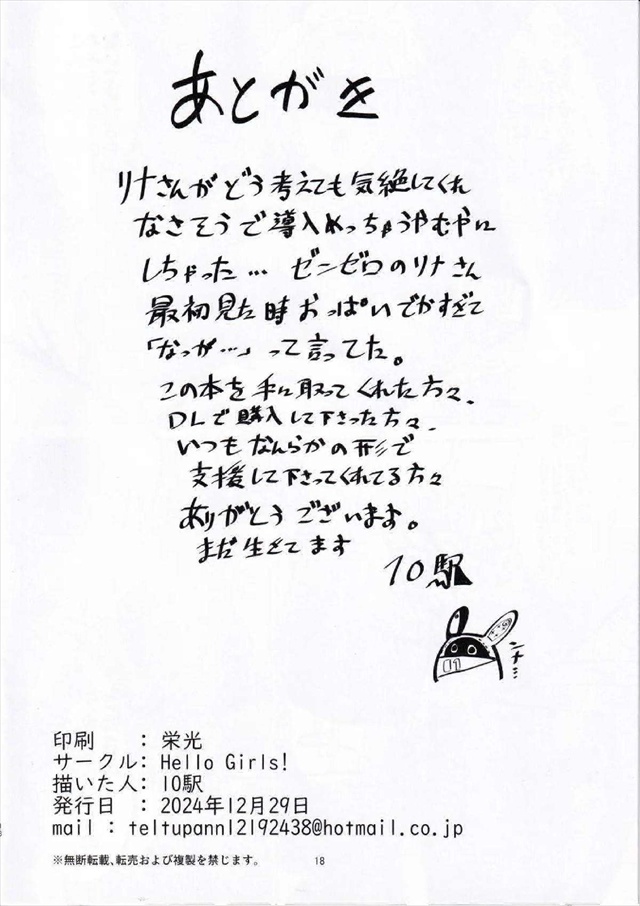 あとがき
リナさんがどう考えても気絶してくれ
なさそうで導入めっちゃうやむやに
しちゃった… ゼンゼロのリナさん
最初見た時おっぱいでかすぎて
「なっが…」って言ってた。
この本を手に取ってくれた方々、
DLで購入して下さった方々、
いつもなんらかの形で
支援して下さってくれてる方々
ありがとうございます。
まだ生きてます
10駅
01
印刷 : 栄光
サークル: Hello Girls!
描いた人: 10駅
発行日 : 2024年12月29日
mail : teltupann12192438@hotmail.co.jp
※無断転載、転売および複製を禁じます。
18